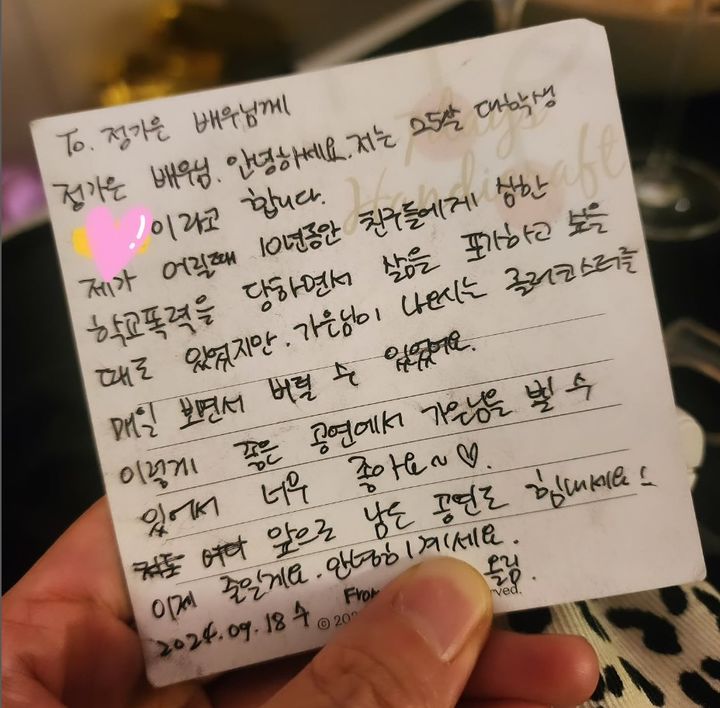 To. 정가은 배우님께
정가은 배우님. 안녕하세요. 저는 25살 대학생
이라고 합니다.
제가 어릴때 10년동안 친구들에게 심한
학교폭력을 당하면서 삶을 포기하고 싶을
때도 있었지만. 가은님이 나오시는 롤러코스터를
매일 보면서 버틸 수 있었어요.
이렇게 좋은 공연에서 가은님을 뵐 수
있어서 너무 좋아요~♡.
앞으로 남은 공연도 힘내세요
이제 줄일게요. 안녕히계세요.
2024.09.18 수 From 올림.
© 202 rved.
7days
Handicraft